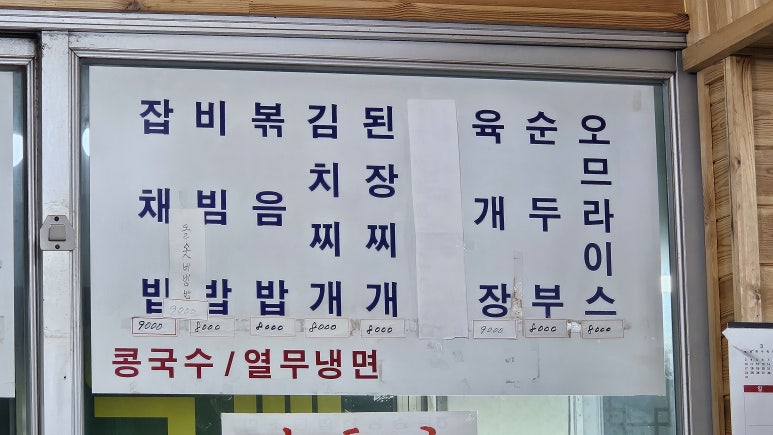 잡채밥
비빔밥
볶음밥
김치찌개
된장찌개
육개장
순두부
오므라이스
돌솥비빔밥
9000
9000
8000
8000
8000
8000
9000
8000
8000
콩국수 / 열무냉면